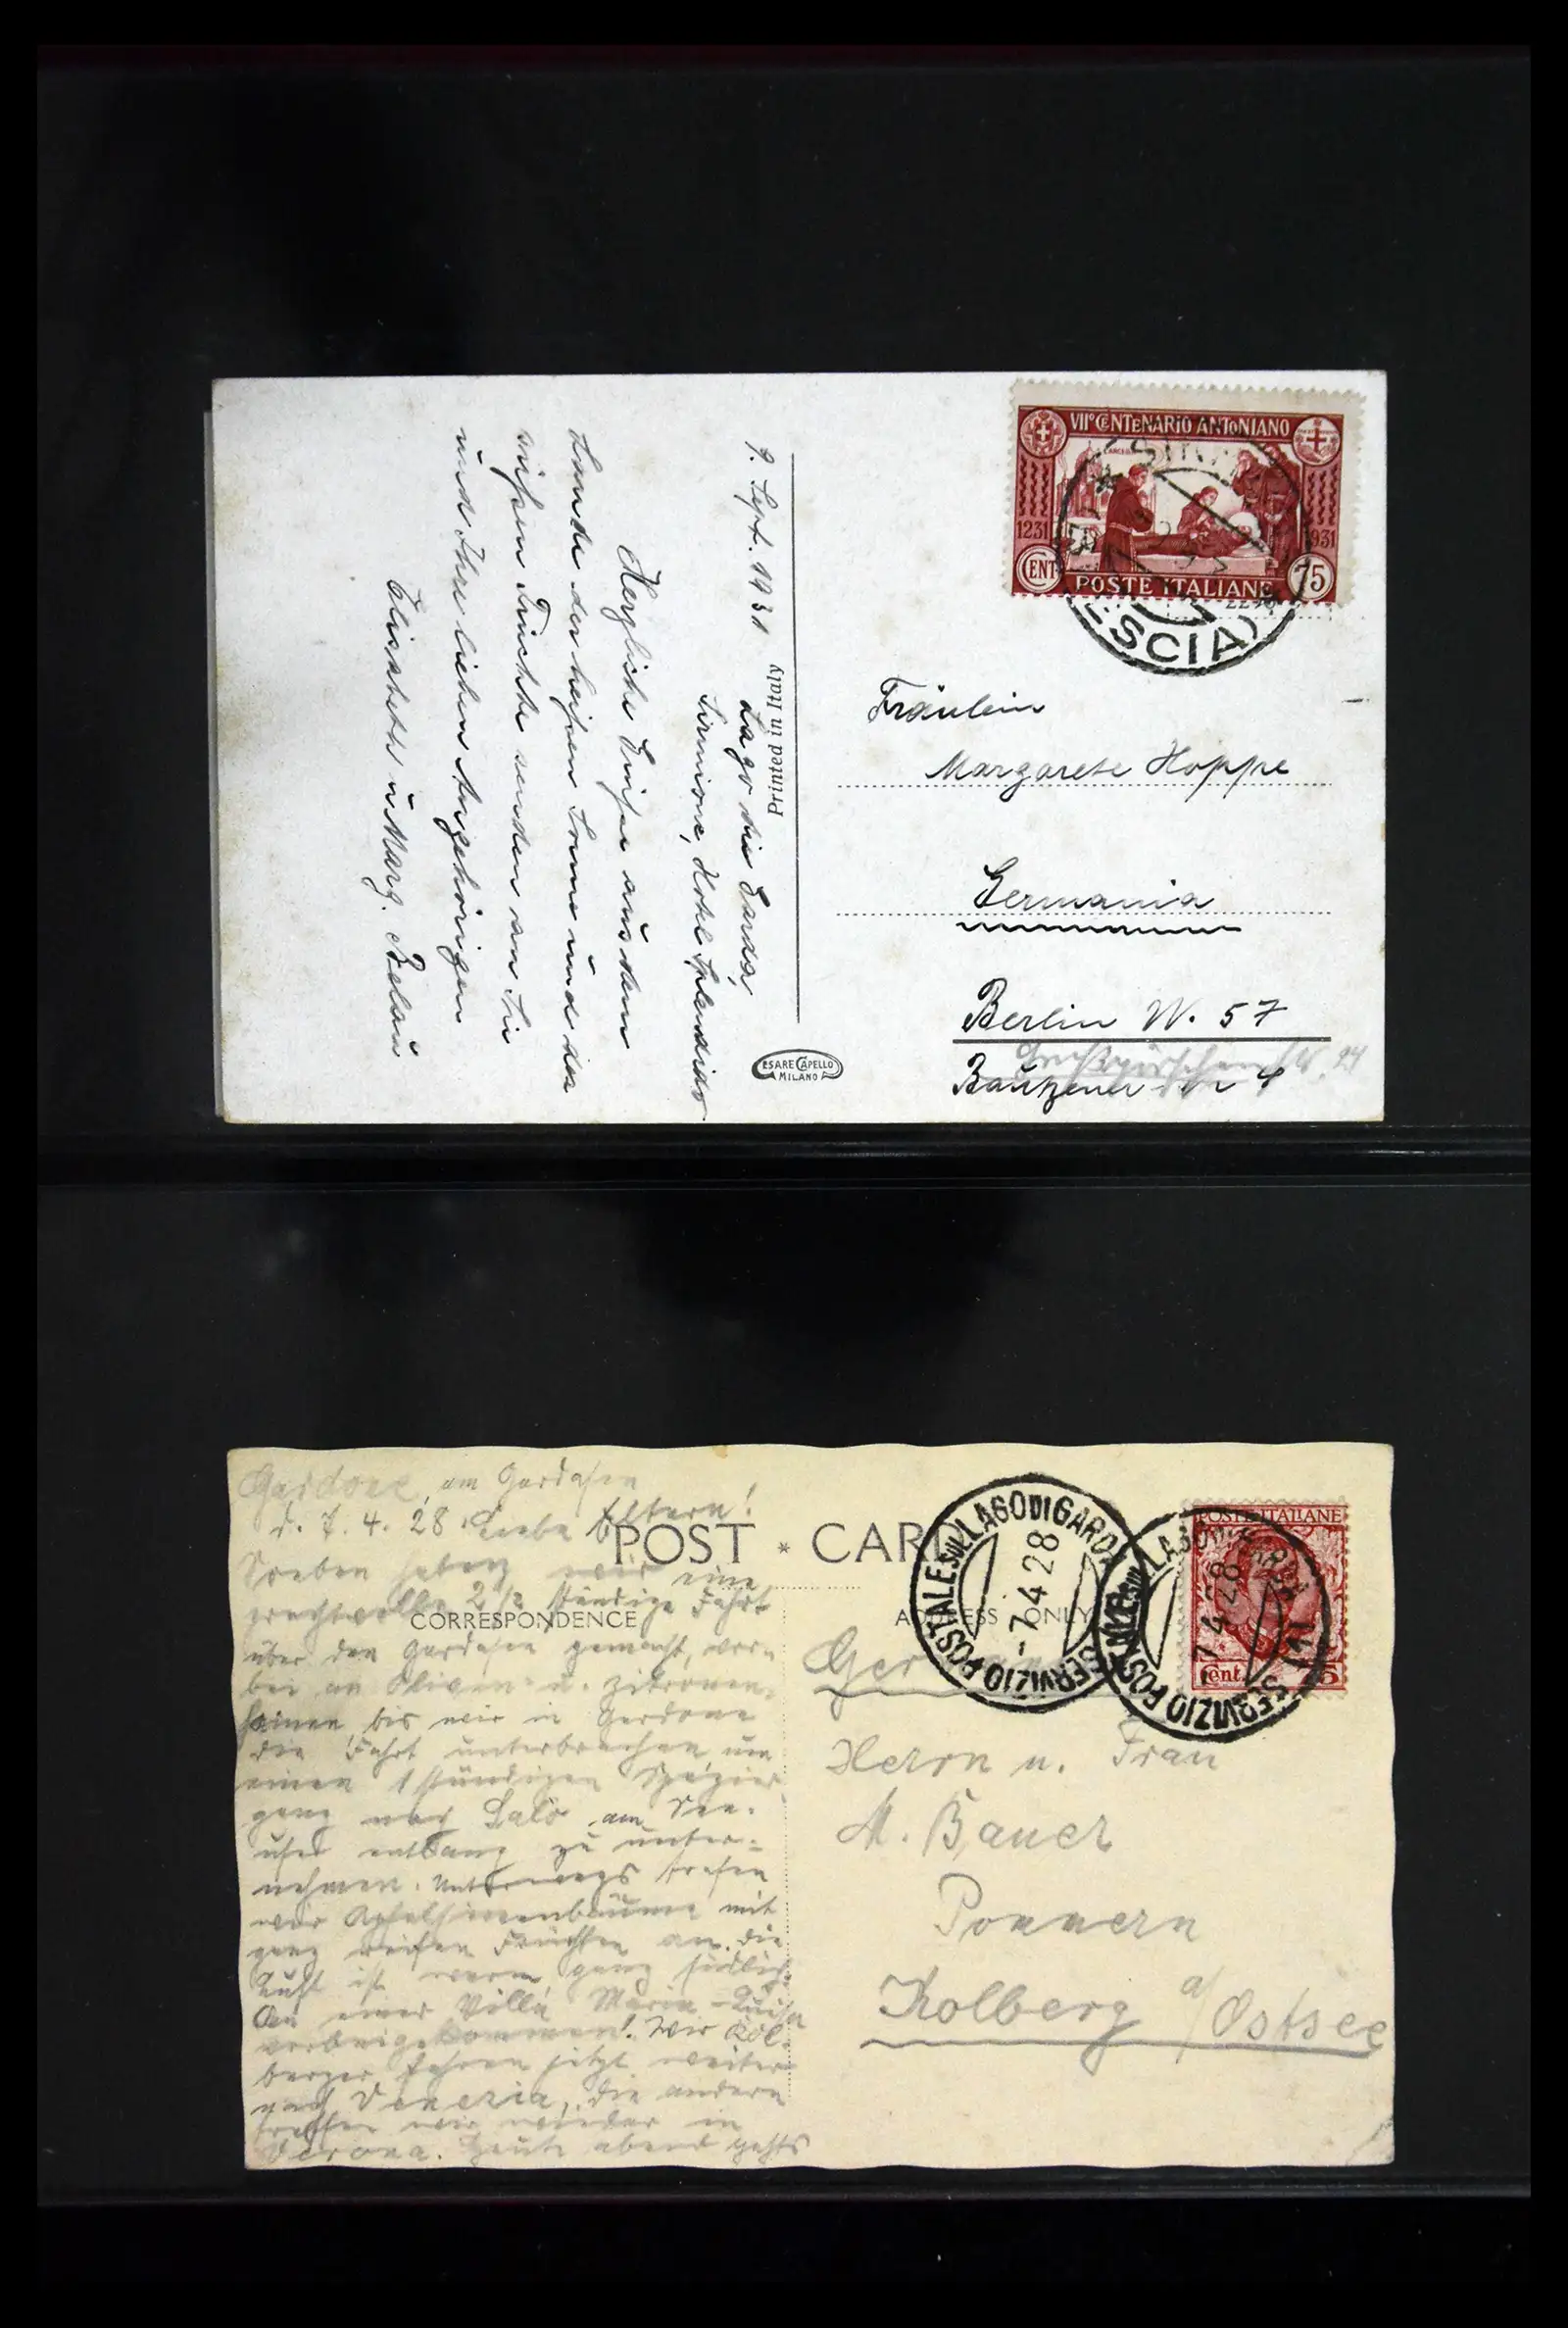 VII° CENTENARIO ANTONIANO
1231
1931
CENT
75
POSTE ITALIANE
ESCIA)
9. Sept. 1931
Lago die Garda,
Sirmione, Hotel Splendido
Herzliche Grüße aus dem
Lande der heißen Sonne und der
süßen Früchte senden an Sie
und Ihre lieben Angehörigen
Elisabeth u Marg.
Printed in Italy
CESARE CAPELLO
MILANO
Fräulein
Margarete Hoppe
Germania
Berlin W. 57
Bautzener
Gardone, am Gardasee
d. 7. 4. 28. Liebe Eltern!
Soeben haben wir eine
prachtvolle 2 1/2 stündige Fahrt
über den Gardasee gemacht, vor-
bei an Oliven- u. Zitronen-
hainen, bis wir in Gardone
die Fahrt unterbrachen, um
einen 1 stündigen Spazier-
gang nach Salo am See-
ufer entlang zu unter-
nehmen. Unterwegs trafen
wir Apfelsinenbäume mit
ganz reifen Früchten an. Die
Luft ist warm, ganz südlich.
An einer Villa Maria-Luisa
vorbeigekommen! Wir Kol-
berger fahren jetzt weiter
nach Venezia, die andern
treffen wir wieder in
Verona. Heute abend gehts
POST * CARD
CORRESPONDENCE
ADDRESS ONLY
SERVIZIO POSTALE SUL LAGO DI GARDA
-7.4.28
SERVIZIO POSTALE SUL LAGO DI GARDA (1)
7.4.28
POSTE ITALIANE
Cent.
Germania
Herrn u. Frau
M. Bauer
Pommern
Kolberg a/Ostsee